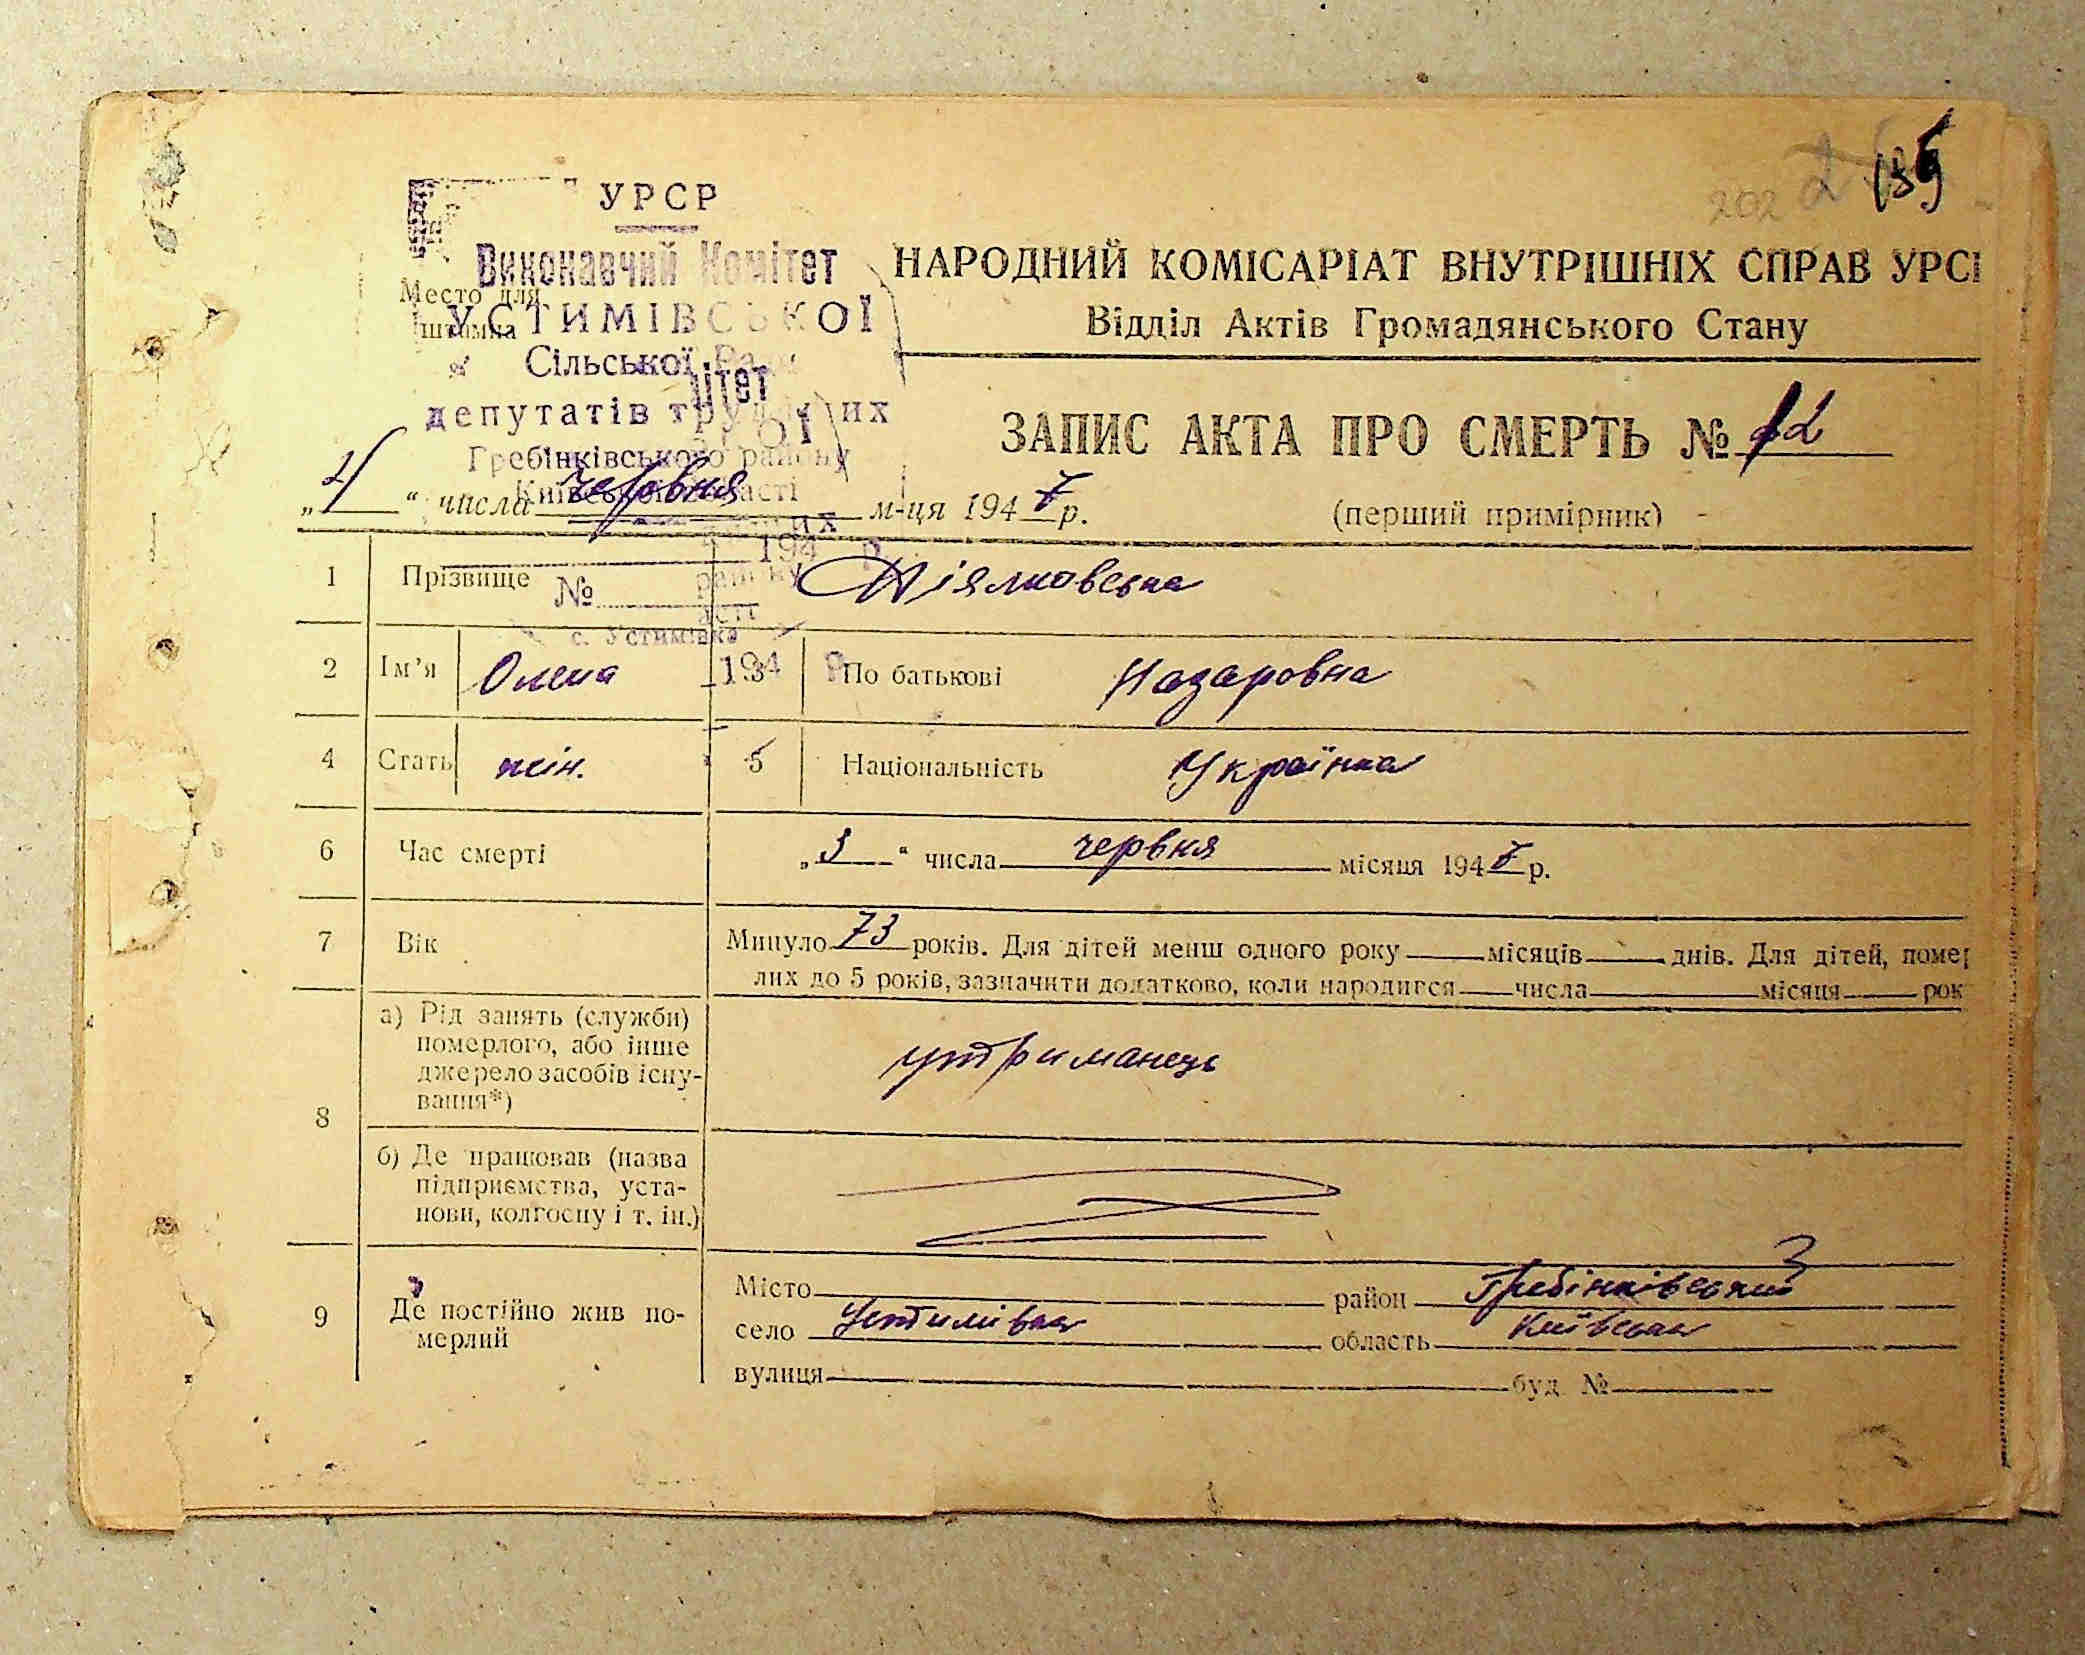 202 2 135
УРСР
Виконавчий Комітет
УСТИМІВСЬКОЇ
Сільської Ради
депутатів трудящих
Гребінківського району
Київської області
Место для
штампа
НАРОДНИЙ КОМІСАРІАТ ВНУТРІШНІХ СПРАВ УРСР
Відділ Актів Громадянського Стану
ЗАПИС АКТА ПРО СМЕРТЬ № 12
„4“ числа червня м-ця 1947 р.
(перший примірник)
194 р.
№
с. Устимівка
1 Прізвище Діямковська
2 Ім’я Олена 3 По батькові Назаровна
4 Стать жін. 5 Національність Українка
6 Час смерті „3“ числа червня місяця 1947 р.
7 Вік Минуло 73 років. Для дітей менш одного року місяців днів. Для дітей, помер
лих до 5 років, зазначити додатково, коли народився числа місяця рок
8 а) Рід занять (служби)
померлого, або інше
джерело засобів існу-
вання*)
утриманець
б) Де працював (назва
підприємства, уста-
нови, колгоспу і т. ін.)
9 Де постійно жив по-
мерлий
Місто район Гребінківський
село Устимівка область Київська
вулиця буд. №